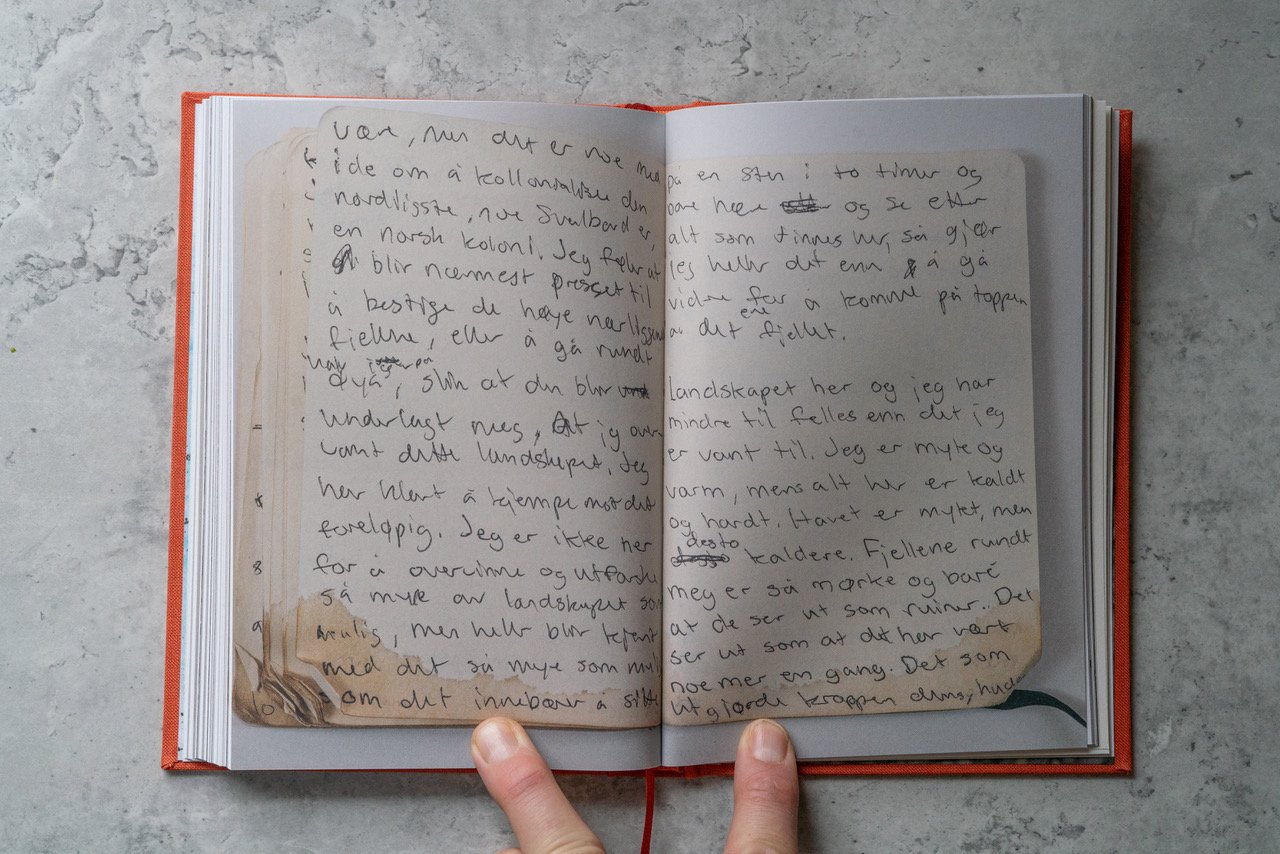 være, men det er noe med
ide om å kollonialisere den
nordligste, noe Svalbard er,
en norsk koloni. Jeg føler at
blir nærmest presset til
å bestige de høye nærliggende
fjellene, eller å gå rundt
øya, slik at den blir
underlagt meg, At jeg over-
vant dette landskapet. Jeg
har klart å kjempe mot det
foreløpig. Jeg er ikke her
for å overvinne og utforske
så mye av landskapet som
mulig, men heller blir kjent
med det så mye som mulig
som det innebærer å sitte
på en sten i to timer og
bare høre og se etter
alt som finnes her, så gjør
jeg heller det enn å gå
videre for å komme på toppen
av det ene fjellet.
Landskapet her og jeg har
mindre til felles enn det jeg
er vant til. Jeg er myk og
varm, mens alt her er kaldt
og hardt. Havet er mykt, men
desto kaldere. Fjellene rundt
meg er så mørke og bare
at de ser ut som ruiner.. Det
ser ut som at det har vært
noe mer en gang. Det som
utgjorde kroppen dens, hud